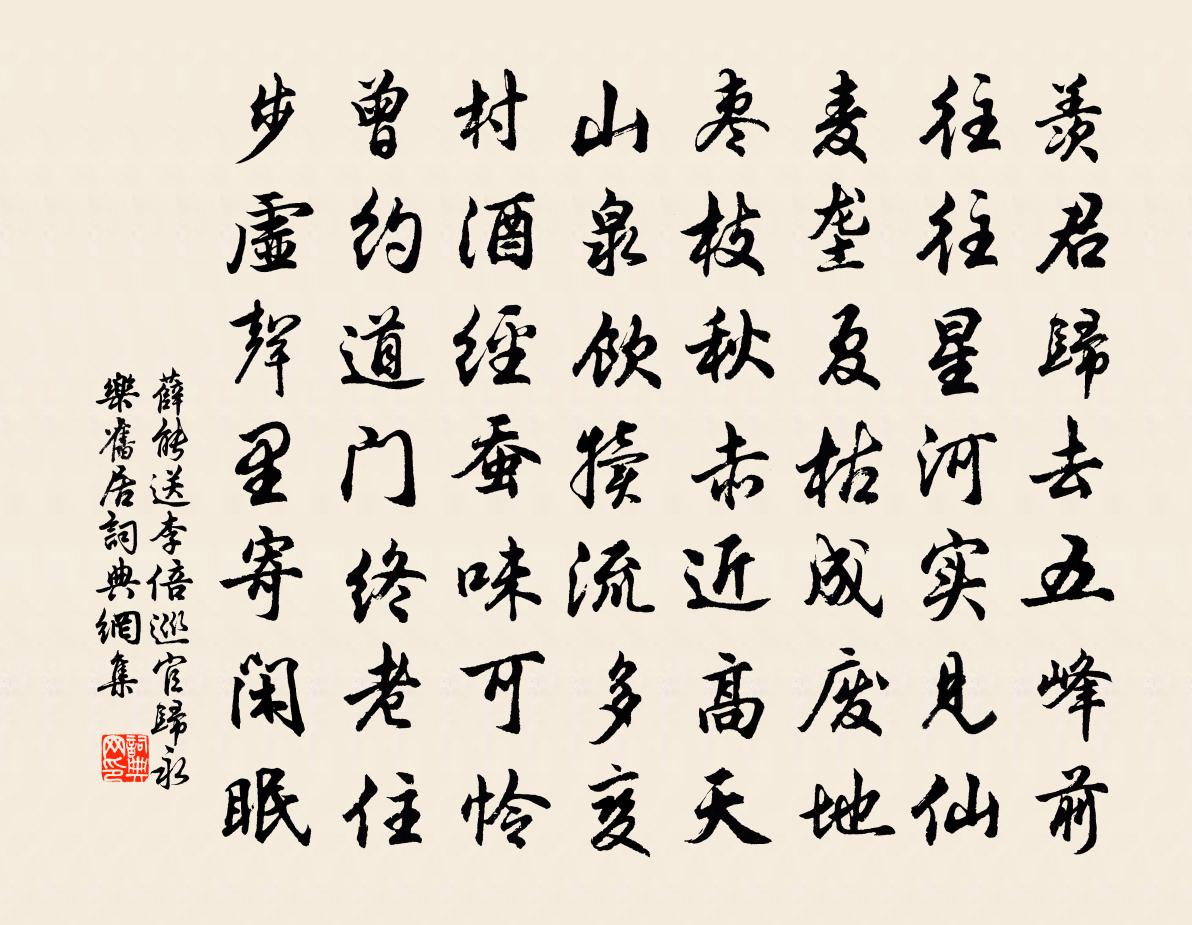 羨君歸去五峰前
往往星河实見仙
麦垄夏枯成废地
枣枝秋赤近高天
山泉饮犊流多变
村酒經蚕味可怜
曾约道门终老住
步虛聲里寄闲眠
薛能送李倍巡官歸永
樂舊居詞典網集
詞典网印